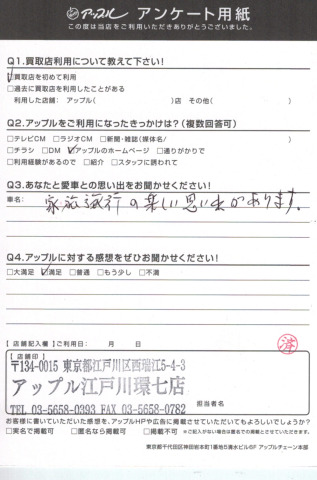 アップル アンケート用紙
この度は当店をご利用いただきありがとうございました。
Q1.買取店利用について教えて下さい!
□買取店を初めて利用
□過去に買取店を利用したことがある
利用した店舗: アップル( )店 その他( )
Q2.アップルをご利用になったきっかけは?(複数回答可)
□テレビCM □ラジオCM □新聞・雑誌(媒体名/ )
□チラシ □DM □アップルのホームページ □通りがかりで
□利用経験があるので □紹介 □スタッフに誘われて
Q3.あなたと愛車との思い出をお聞かせください!
車名:
家族旅行の楽しい思い出があります。
Q4.アップルに対する感想をぜひお聞かせください!
□大満足 □満足 □普通 □もう少し □不満
【店舗記入欄】ご利用日: 月 日
済
【店舗印】
〒134-0015 東京都江戸川区西瑞江5-4-3
アップル江戸川環七店
TEL 03-5658-0393 FAX 03-5658-0782
担当者名
お客様に書いていただいた感想を、アップルHPや広告に掲載させていただいてもよろしいでしょうか?
□実名で掲載可 □匿名なら掲載可 □掲載不可 ※ご記入がない場合は匿名での掲載とさせていただきます。
東京都千代田区神田岩本町1番地5清水ビル6F アップルチェーン本部